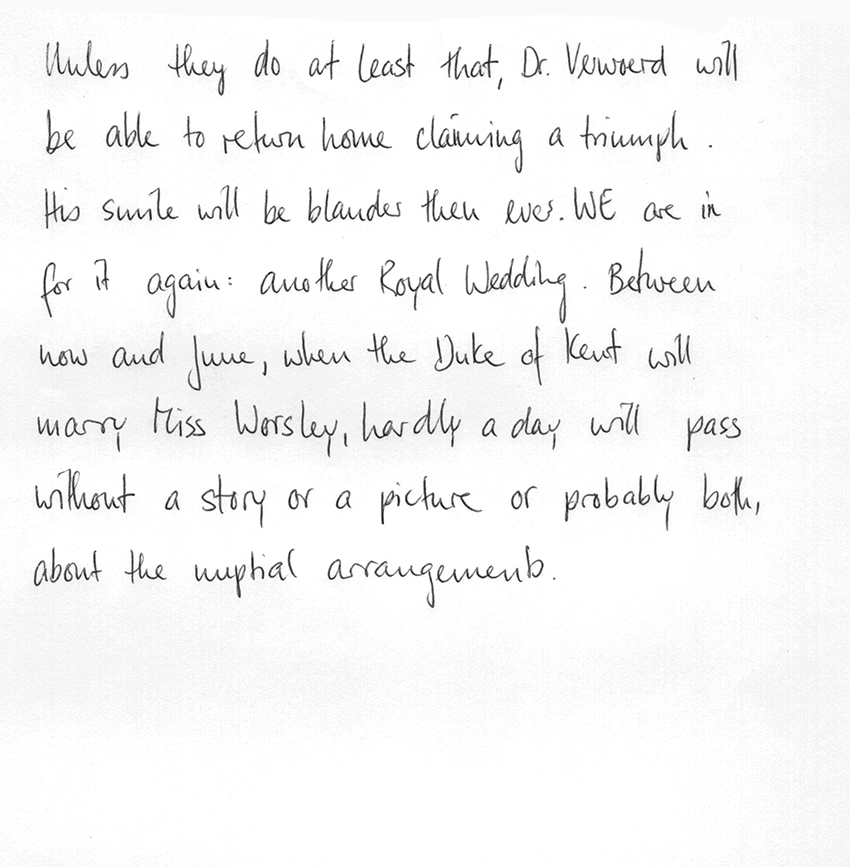 Unless they do at least that, Dr. Verwoerd will
be able to return home claiming a triumph.
His smile will be blander then ever. WE are in
for it again: another Royal Wedding. Between
now and June, when the Duke of Kent will
marry Miss Worsley, hardly a day will pass
without a story or a picture or probably both,
about the nuptial arrangements.